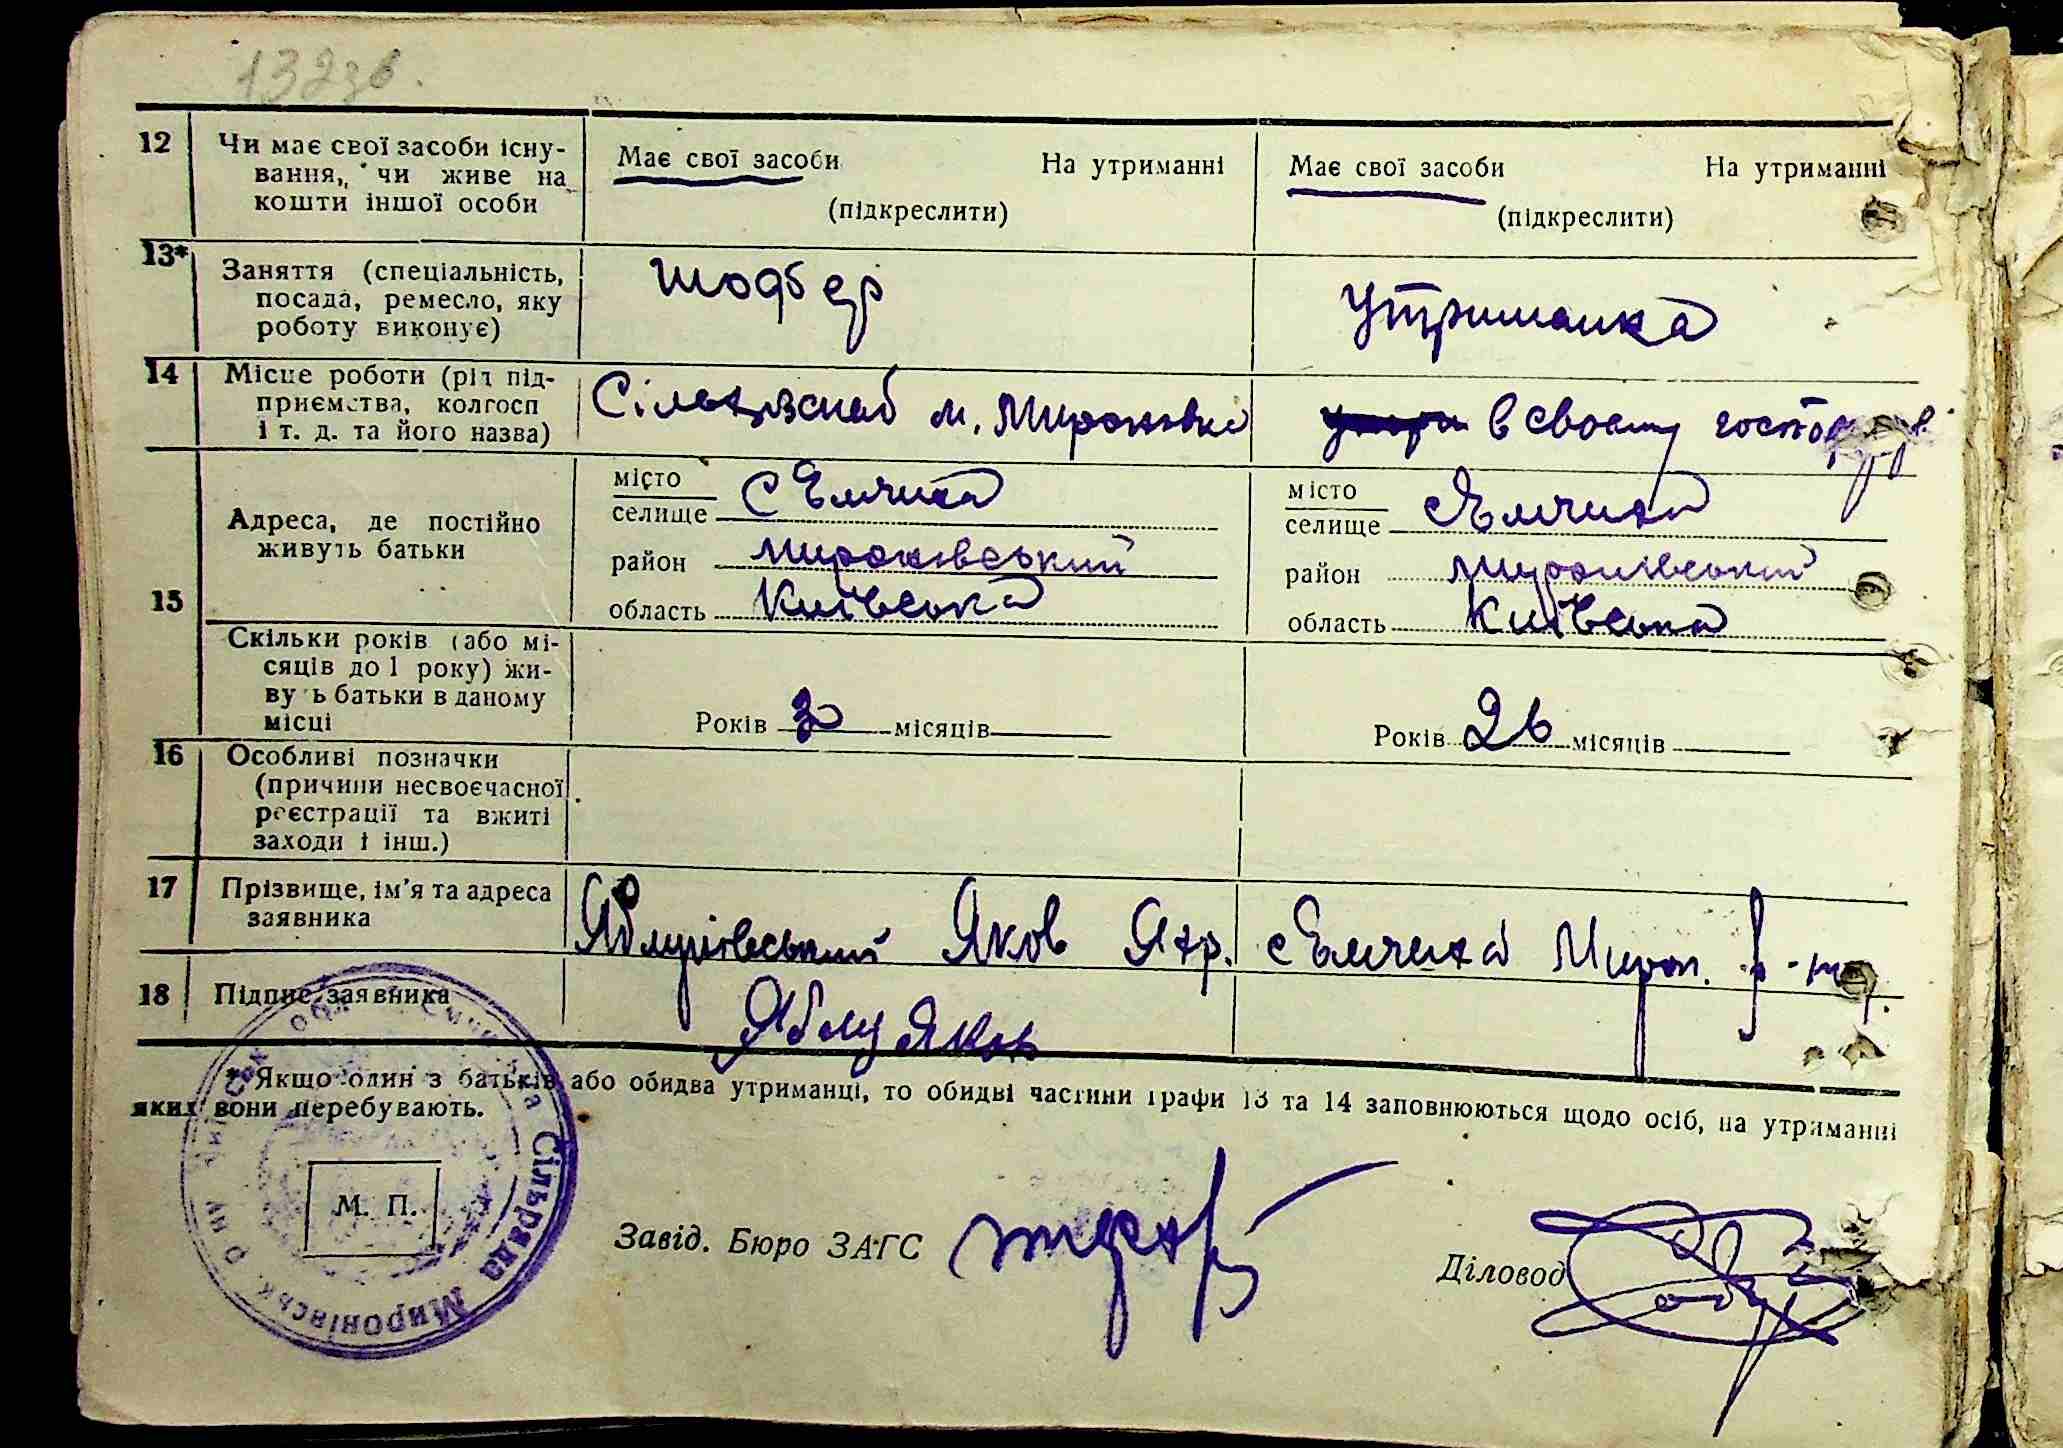 132зв.
12 Чи має свої засоби існу-
вання, чи живе на
кошти іншої особи
Має свої засоби На утриманні
(підкреслити)
Має свої засоби На утриманні
(підкреслити)
13* Заняття (спеціальність,
посада, ремесло, яку
роботу виконує)
шофер
утриманка
14 Місце роботи (рід під-
приємства, колгосп
і т. д. та його назва)
м. Миронівка
в своєму
15 Адреса, де постійно
живуть батьки
місто
селище с Емчиха
район миронівський
область Київська
місто
селище с Ємчиха
район миронівський
область Київська
Скільки років (або мі-
сяців до 1 року) жи-
вуть батьки в даному
місці
Років 30 місяців
Років 26 місяців
16 Особливі позначки
(причини несвоєчасної
реєстрації та вжиті
заходи і інш.)
17 Прізвище, ім'я та адреса
заявника
Яков с Емчиха Мирон. р-ну.
18 Підпис заявника
Яблу Яков
* Якщо один з батьків або обидва утриманці, то обидві частини графи 13 та 14 заповнюються щодо осіб, на утриманні
яких вони перебувають.
Сільрада Миронівськ. р-ну
М. П.
Завід. Бюро ЗАГС
Діловод